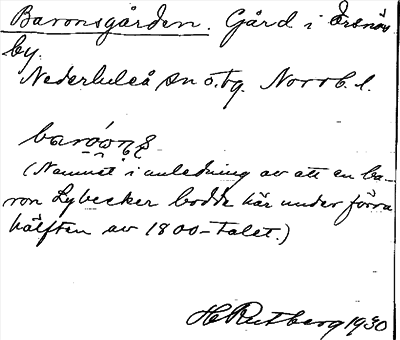 Baronsgården. Gård i Ersnäs
by.
Nederluleå sn o. tg. Norrb. l.
(Namnet i anledning av att en ba-
ron Lybecker bodde här under förra
hälften av 1800-talet.)
H Rutberg 1930